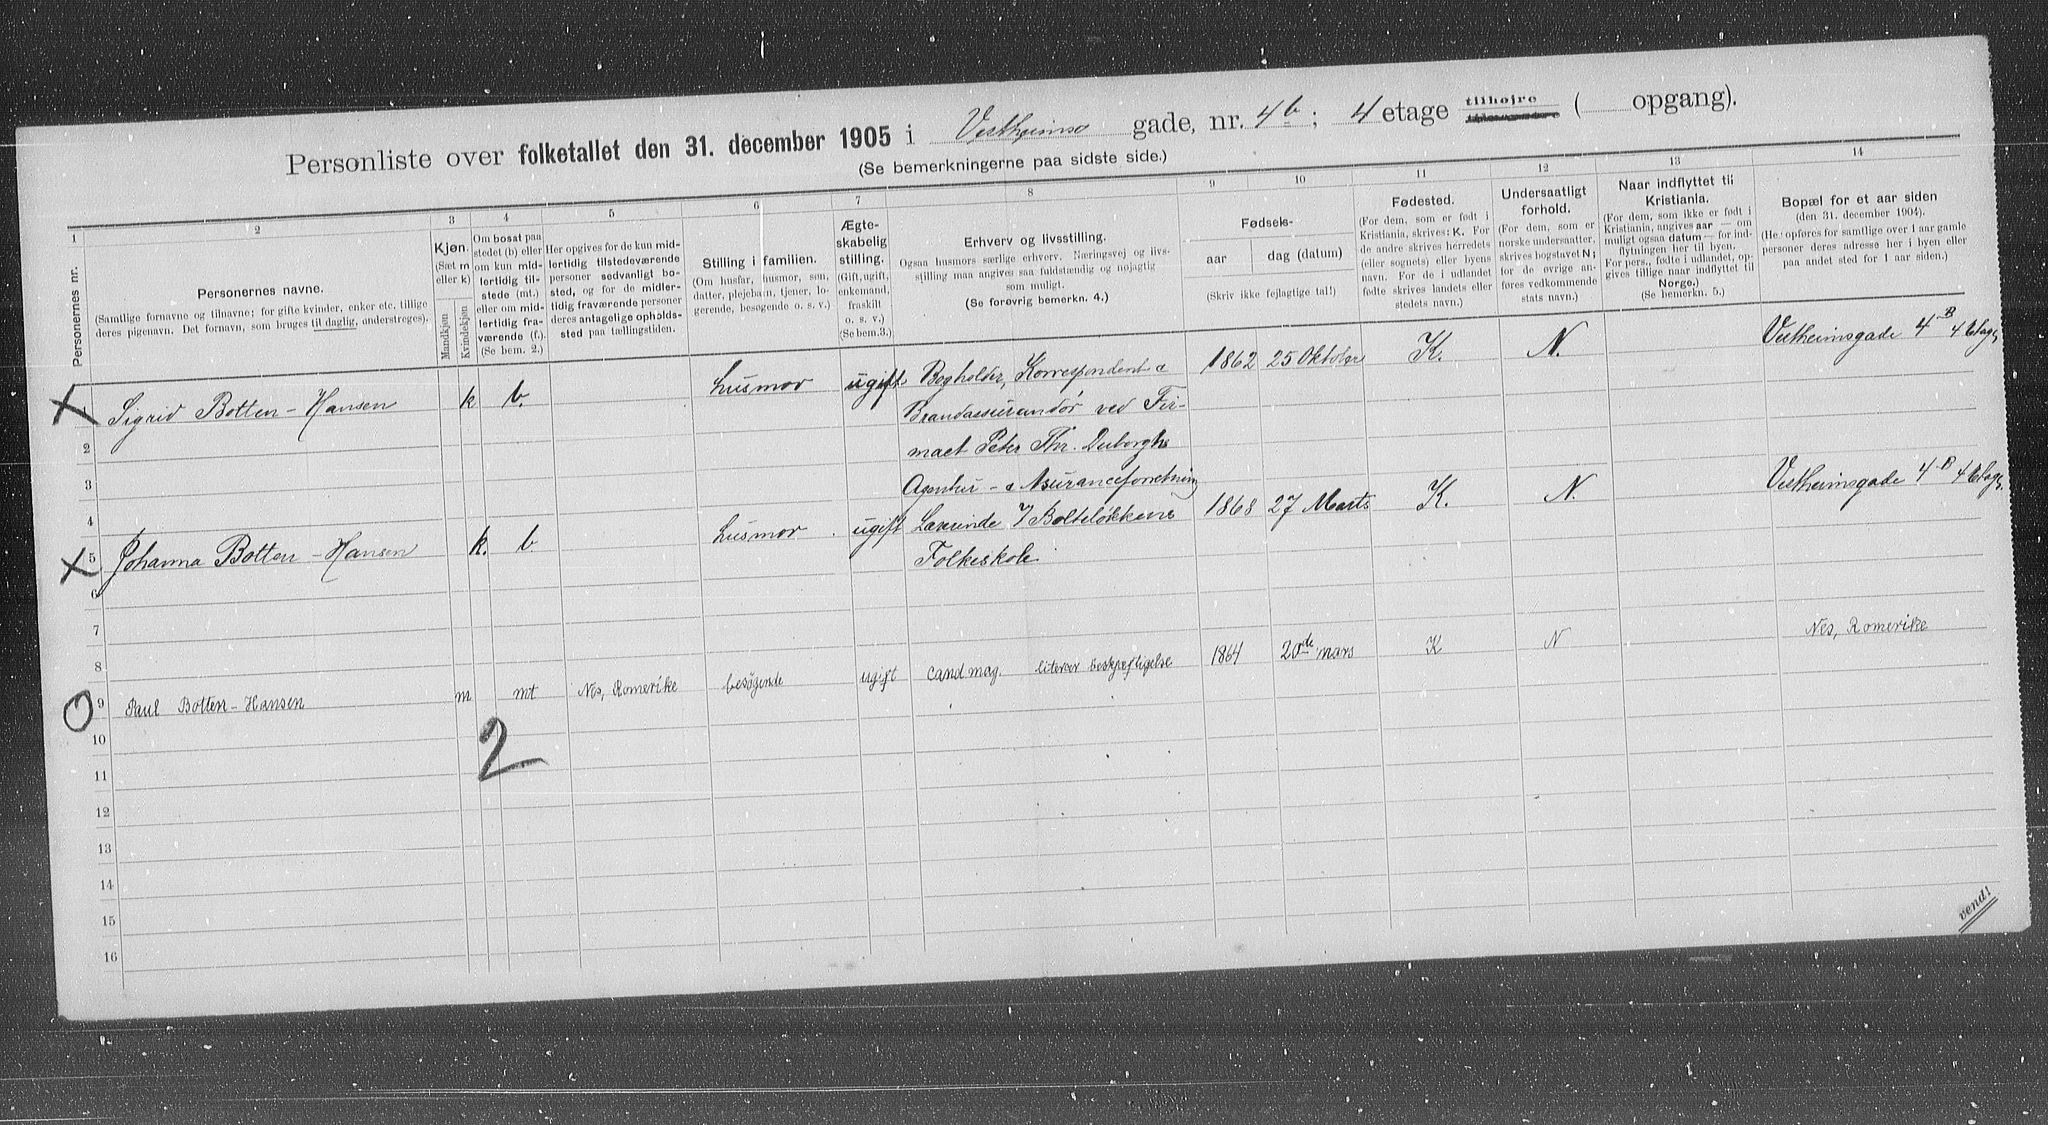 Personliste over folketallet den 31. december 1905 i Vestheims gade, nr. 4b; 4 etage tilhøjre ( opgang).
(Se bemerkningerne paa sidste side.)
1 2 3 4 5 6 7 8 9 10 11 12 13 14
Personernes nr.
Personernes navne.
(Samtlige fornavne og tilnavne; for gifte kvinder, enker etc. tillige
deres pigenavn. Det fornavn, som bruges til daglig, understreges).
Kjøn.
(Sæt m
eller k)
Mandkjøn
Kvindekjøn
Om bosat paa
stedet (b) eller
om kun mid-
lertidig til-
stede (mt.)
eller om mid-
lertidig fra-
værende (f.).
(Se bem. 2.)
Her opgives for de kun mid-
lertidig tilstedeværende
personer sedvanligt bo-
sted, og for de midler-
tidig fraværende personer
deres antagelige opholds-
sted paa tællingstiden.
Stilling i familien.
(Om husfar, husmor, søn,
datter, plejebarn, tjener, lo-
gerende, besøgende o. s. v.)
Ægte-
skabelig
stilling.
(Gift, ugift,
enkemand,
fraskilt
o. s. v.)
(Se bem. 3.)
Erhverv og livsstilling.
Ogsaa husmors særlige erhverv. Næringsvej og livs-
stilling maa angives saa fuldstændig og nøjagtig
som muligt.
(Se forøvrig bemerkn. 4.)
Fødsels-
aar
dag (datum)
(Skriv ikke fejlagtige tal!)
Fødested.
(For dem, som er født i
Kristiania, skrives: K. For
de andre skrives herredets
(eller sognets) eller byens
navn. For de i udlandet
fødte skrives landets eller
stedets navn.)
Undersaatligt
forhold.
(For dem, som er
norske undersaatter,
skrives bogstavet N;
for de øvrige an-
føres vedkommende
stats navn.)
Naar indflyttet til
Kristiania.
(For dem, som ikke er født i
Kristiania, angives aar — om
muligt ogsaa datum — for ind-
flytningen her til byen.
For pers., fødte i udlandet, op-
gives tillige naar indflyttet til
Norge.)
(Se bemerkn. 5.)
Bopæl for et aar siden
(den 31. december 1904).
(Her opføres for samtlige over 1 aar gamle
personer deres adresse her i byen eller
paa andet sted for 1 aar siden.)
X 1 Sigrid Botten-Hansen k b. husmor ugift Bogholder, Korrespondent & 1862 25 Oktober K. N. Vestheimsgade 4B 4 Etage
2 Brandassurandør ved Fir-
3 maet Peter Thr. Duborghs
4 Agentur- & Assuranceforretning
X 5 Johanna Botten-Hansen k. b husmor ugift Lærerinde v/ Bolteløkkens 1868 27 Marts K. N. Vestheimsgade 4B 4 Etage
6 Folkeskole
7
8
O 9 Paul Botten-Hansen m mt Nes, Romerike besøgende ugift cand mag. literær beskjæftigelse 1864 20de mars K N Nes, Romerike
2
10
11
12
13
14
15
16
vend!